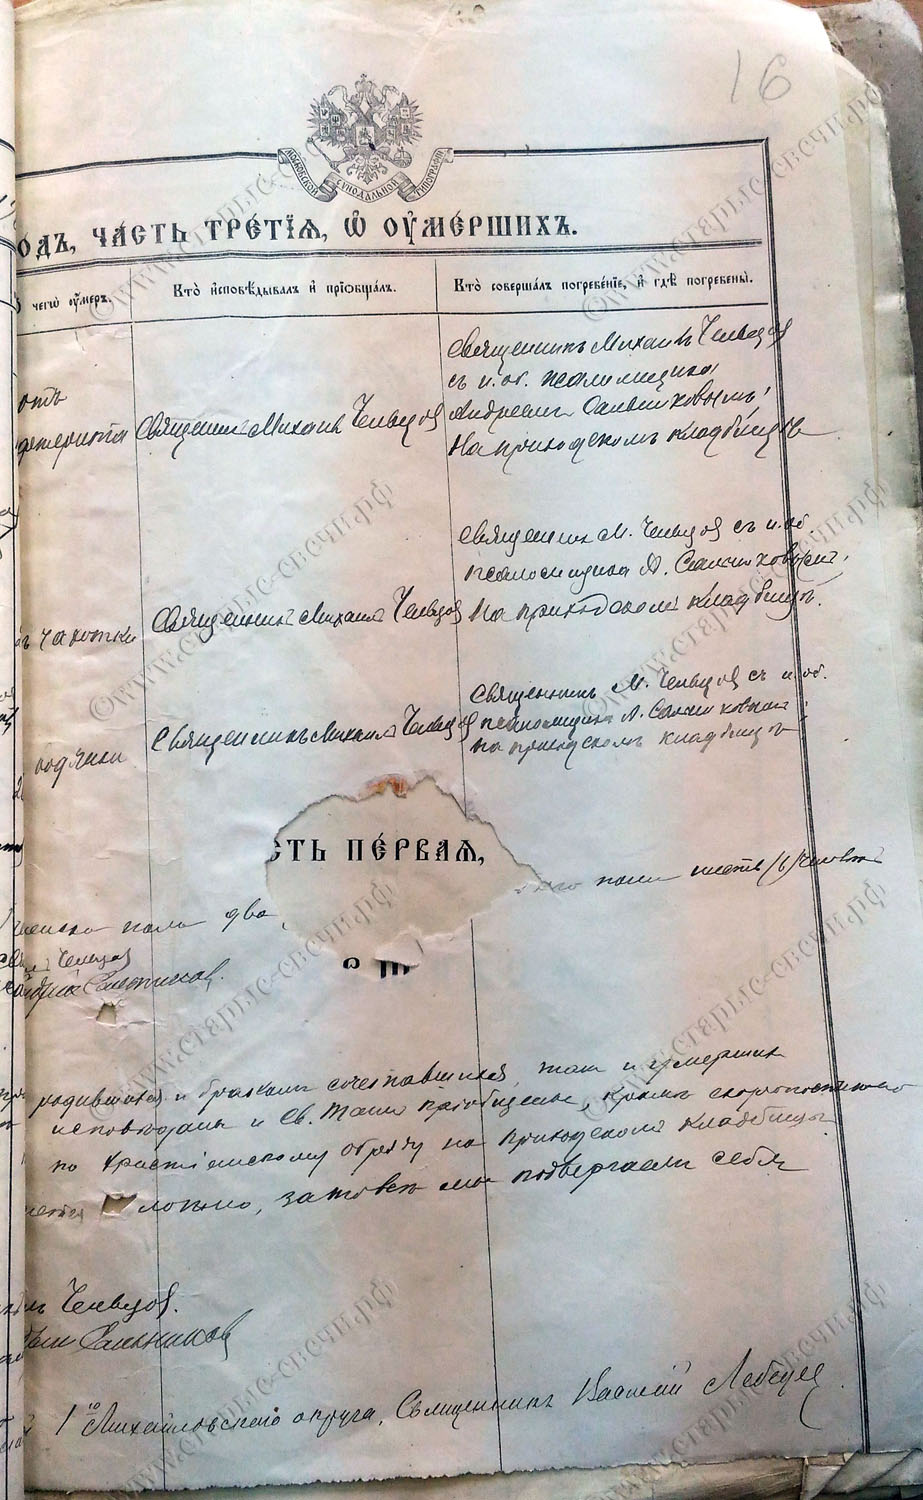 16
МОСКОВСКОЙ СѴНОДАЛЬНОЙ ТИПОГРАФІИ
ОДЪ, ЧА́СТЬ ТРЕ́ТІЯ, Ѽ ОУ҆МЕ́РШИХЪ.
чегѡ оу҆́меръ.
Кто̀ и҆сповѣ́дывалъ и҆ пріѡбща́лъ.
Кто̀ соверша́лъ погребе́ніе, и҆ гдѣ̀ погребены̀.
отъ
Священникъ Михаилъ Чельцовъ
Священникъ Михаилъ Чельцовъ
съ и. об. псаломщика
Андреемъ Сальниковымъ
На приходскомъ кладбищѣ
чахотки
Священникъ Михаилъ Чельцовъ
Священникъ М. Чельцовъ съ и. об.
псаломщика А. Сальниковымъ
На приходскомъ кладбищѣ.
водянки
Священникъ Михаилъ Чельцовъ
Священникъ М. Чельцовъ съ и. об.
псаломщика А. Сальниковымъ
на приходскомъ кладбищѣ
СТЬ ПЕ́РВАЯ,
женска пола два
пола шесть (6) человѣкъ
Чельцовъ
Сальниковъ.
родившихся и бракомъ сочетавшихся, такъ и умершихъ
исповѣданы и Св. Таинъ пріобщены, кромѣ скоропостижно
по христіанскому обряду на приходскомъ кладбищѣ
ложно, за то всѣ мы подвергаемъ себя
Чельцовъ.
Сальниковъ
1го Михайловскаго округа, Священникъ Василій Лебедев
©www.старые-свечи.рф